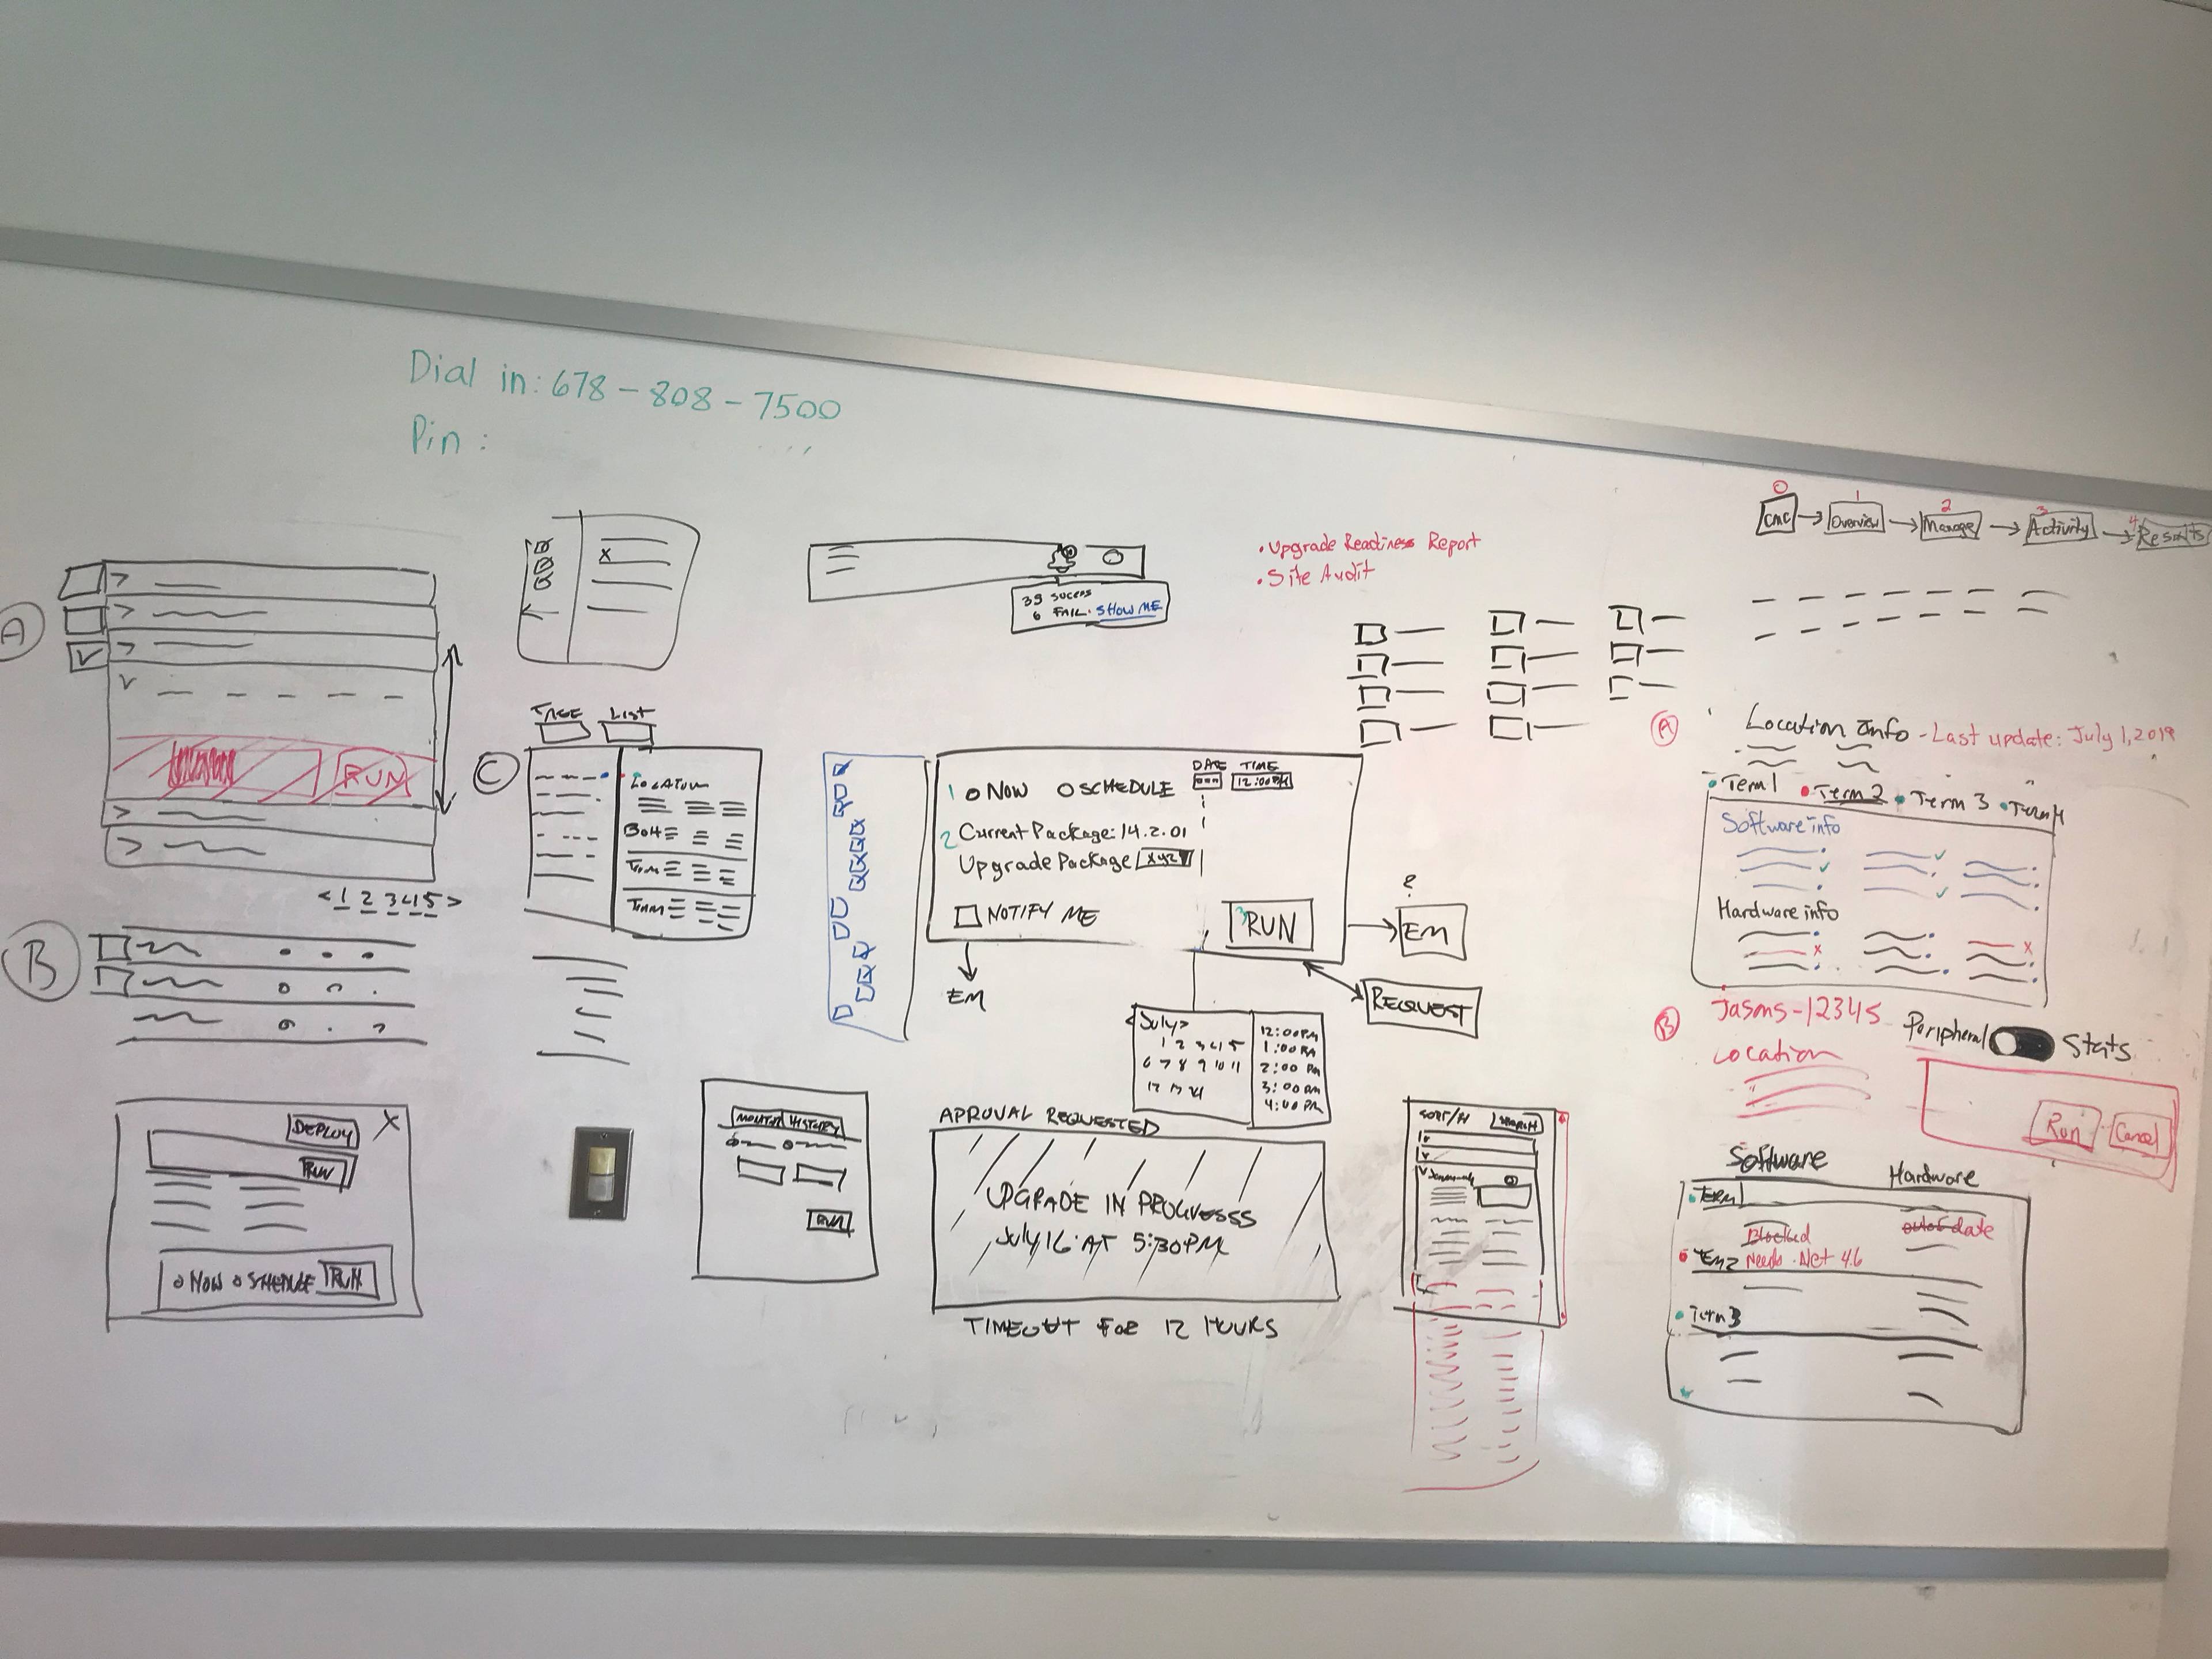 Dial in: 678-808-7500
Pin:
0 1 2 3 4
CMC Overview Manage Activity Results
• Upgrade Readiness Report
• Site Audit
39 SUCCESS
6 FAIL. SHOW ME
A
RUN
< 1 2 3 4 5 >
B
DEPLOY X
RUN
NOW SHEDULE RUN
TREE LIST
C
LOCATION
BOH
TERM
TERM
DATE TIME
1 NOW SCHEDULE 12:00PM
2 Current Package: 14.2.01
Upgrade Package XYZ
NOTIFY ME
3 RUN
?
EM
EM
REQUEST
<July>
1 2 3 4 5
6 7 8 9 10 11
12 13 14
12:00PM
1:00PM
2:00PM
3:00PM
4:00PM
HISTORY
RUN
APROVAL REQUESTED
UPGRADE IN PROGRESSS
July 16 AT 5:30PM
TIMEOUT FOR 12 HOURS
SEARCH
A
Location Info - Last update: July 1, 2019
• Term 1 • Term 2 • Term 3 • Term 4
Software info
Hardware info
B
Jasons-12345
Location
Peripheral Stats
Run Cancel
Software Hardware
• TERM 1
Blocked out of date
Needs .Net 4.6
• Term 3